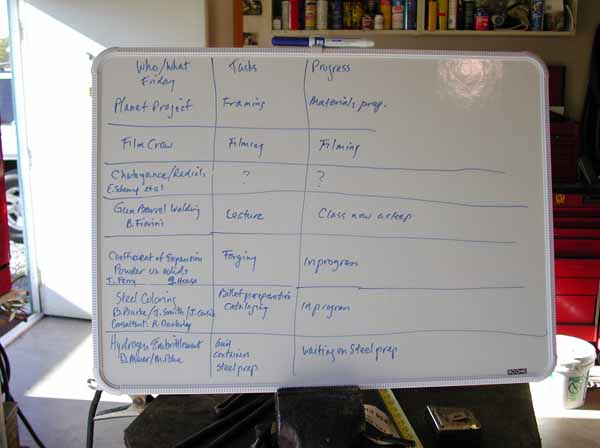 Who/What Tasks Progress
Friday
Planet Project Framing Materials prep.
Film Crew Filming Filming
Chatoyance/Radials ? ?
et al
Gun Barrel Welding Lecture Class now asleep
B. Fiorini
Coefficient of Expansion Forging In progress
Powder vs solids
J. Perry House
Steel Coloring Billet preparation In progress
B. Burke/J. Smith/J. Cataloging
Consultant: R.
Hydrogen Embrittlement Waiting on Steel prep
container
steel prep